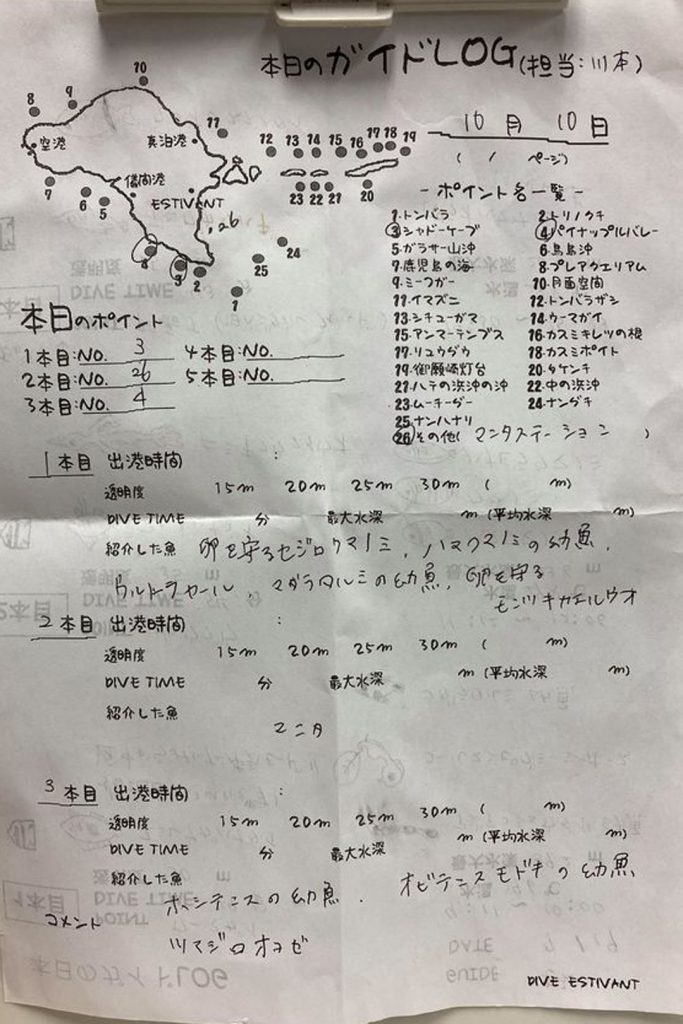 本日のガイドLOG(担当:川本)
10月10日
( / ページ)
10
9
8
空港
真泊港
11
12 13 14 15 16 17 18 19
7
6
5
儀間港
ESTIVANT
23 22 21
20
26
24
25
4
3
2
1
-ポイント名一覧-
1.トンバラ 2.トリノクチ
3シャドーケーブ 4パイナップルバレー
5ガラサー山沖 6.鳥島沖
7.鹿児島の海 8プレアクエリアム
9.ミーフガー 10.月面空間
11.イマズニ 12.トンバラザシ
13シチューガマ 14.ウーマガイ
15.アンマーテンブス 16.カスミキレツの根
17.リュウグウ 18.カスミポイト
19.御願崎灯台 20.タケンチ
21.ハテの浜沖の沖 22.中の浜沖
23.ムーチーグー 24.ナングチ
25ナンハナリ
26その他(マンタステーション)
本日のポイント
1本目:NO. 3 4本目:NO.
2本目:NO. 26 5本目:NO.
3本目:NO. 4
1本目 出港時間 :
透明度 15m 20m 25m 30m ( m)
DIVE TIME 分 最大水深 m(平均水深 m)
紹介した魚 卵を守るセジロクマノミ、ハマクマノミの幼魚、
ウルトラセール、マダラタルミの幼魚、卵を守る
モンツキカエルウオ
2本目 出港時間 :
透明度 15m 20m 25m 30m ( m)
DIVE TIME 分 最大水深 m(平均水深 m)
紹介した魚
マンタ
3本目 出港時間 :
透明度 15m 20m 25m 30m ( m)
DIVE TIME 分 最大水深 m(平均水深 m)
紹介した魚
ホシテンスの幼魚、オビテンスモドキの幼魚
コメント
ツマジロオコゼ
DIVE ESTIVANT